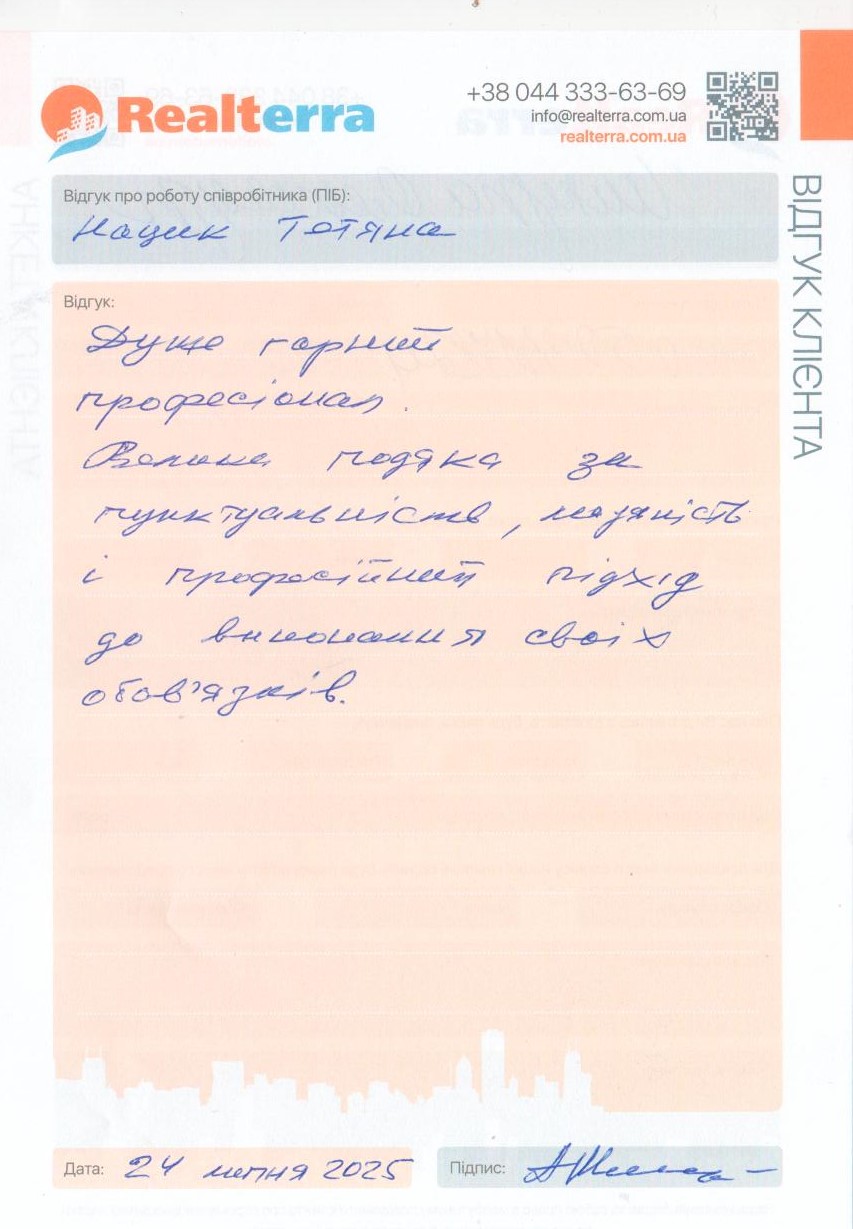 Realterra
+38 044 333-63-69
info@realterra.com.ua
realterra.com.ua
ВІДГУК КЛІЄНТА
Відгук про роботу співробітника (ПІБ):
Нацик Тетяна
Відгук:
Дуже гарний
професіонал.
Велика подяка за
пунктуальність, надійність
і професійний підхід
до виконання своїх
обов'язків.
Дата: 24 липня 2025
Підпис: